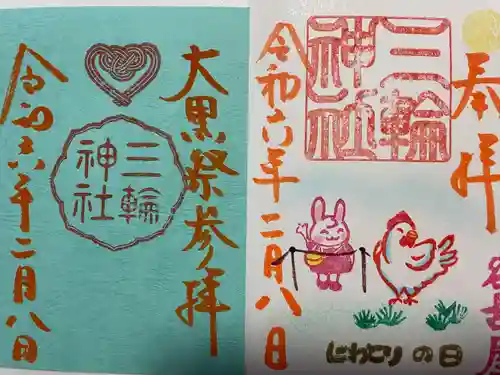 大黒祭参拝
三輪
神社
令和六年二月八日
奉拝
三輪
神社
令和六年二月八日
名古屋
にわとりの日